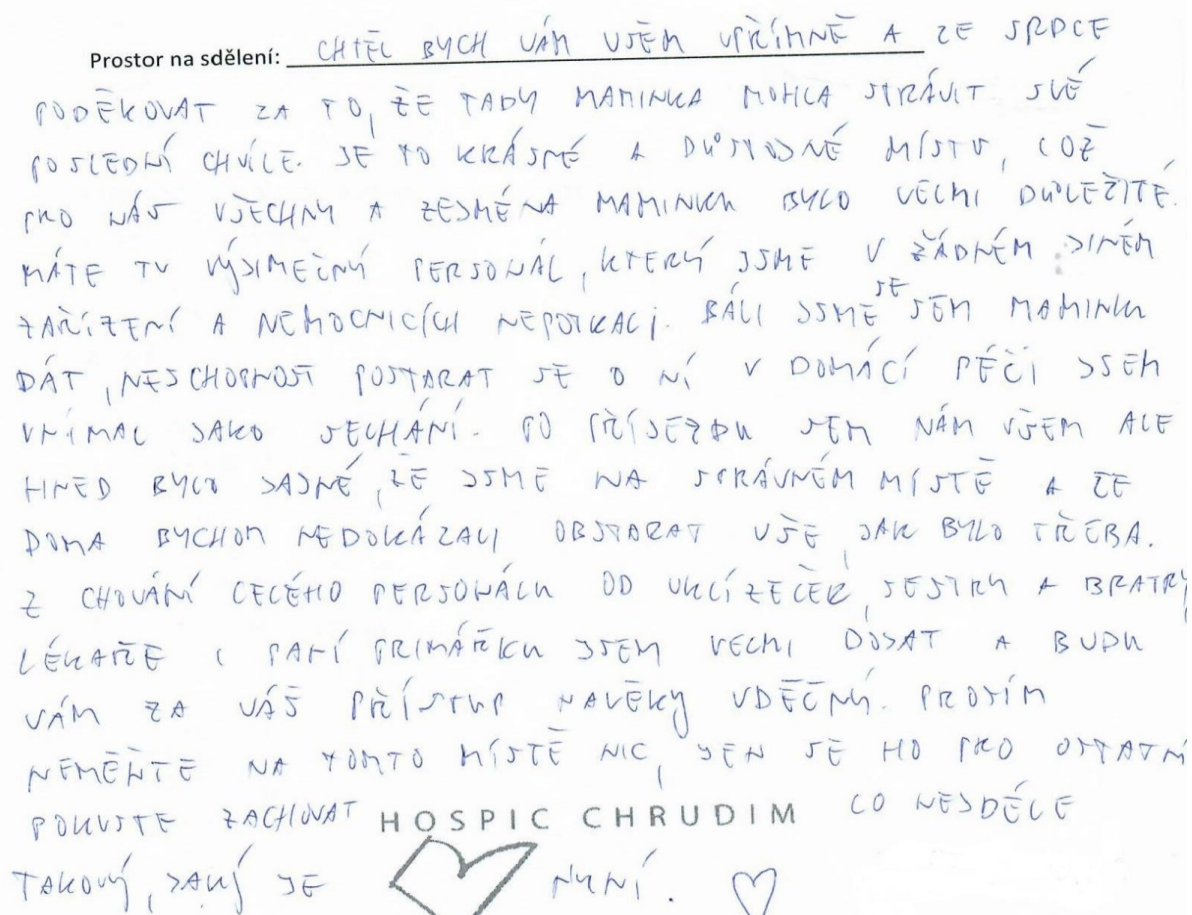 Prostor na sdělení: CHTĚL BYCH VÁM VŠEM UPŘÍMNĚ A ZE SRDCE
PODĚKOVAT ZA TO, ŽE TADY MAMINKA MOHLA STRÁVIT SVÉ
POSLEDNÍ CHVÍLE. JE TO KRÁSNÉ A DŮSTOJNÉ MÍSTO, COŽ
PRO NÁS VŠECHNY A ZEJMÉNA MAMINKU BYLO VELMI DŮLEŽITÉ.
MÁTE TU VÝJIMEČNÝ PERSONÁL, KTERÝ JSME V ŽÁDNÉM JINÉM
ZAŘÍZENÍ A NEMOCNICÍCH NEPOTKALI. BÁLI JSME SE SEM MAMINKU
DÁT, NESCHOPNOST POSTARAT SE O NÍ V DOMÁCÍ PÉČI JSEM
VNÍMAL JAKO SELHÁNÍ. PO PŘÍJEZDU SEM NÁM VŠEM ALE
HNED BYLO JASNÉ, ŽE JSME NA SPRÁVNÉM MÍSTĚ A ŽE
DOMA BYCHOM NEDOKÁZALI OBSTARAT VŠE, JAK BYLO TŘEBA.
Z CHOVÁNÍ CELÉHO PERSONÁLU OD UKLÍZEČEK, SESTRY A BRATRY,
LÉKAŘE I PANÍ PRIMÁŘKU JSEM VELMI DOJAT A BUDU
VÁM ZA VÁŠ PŘÍSTUP NAVĚKY VDĚČNÝ. PROSÍM
NEMĚŇTE NA TOMTO MÍSTĚ NIC, JEN SE HO PRO OSTATNÍ
POKUSTE ZACHOVAT CO NEJDÉLE
HOSPIC CHRUDIM
TAKOVÝ, JAKÝ JE NYNÍ.